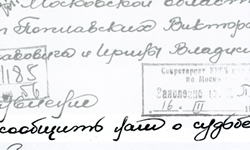 Московской област
Поплавских Виктора
овича и Ирины Владис
1185
56
Секретариат
по Моск
16 II
сообщить нам о судьбе